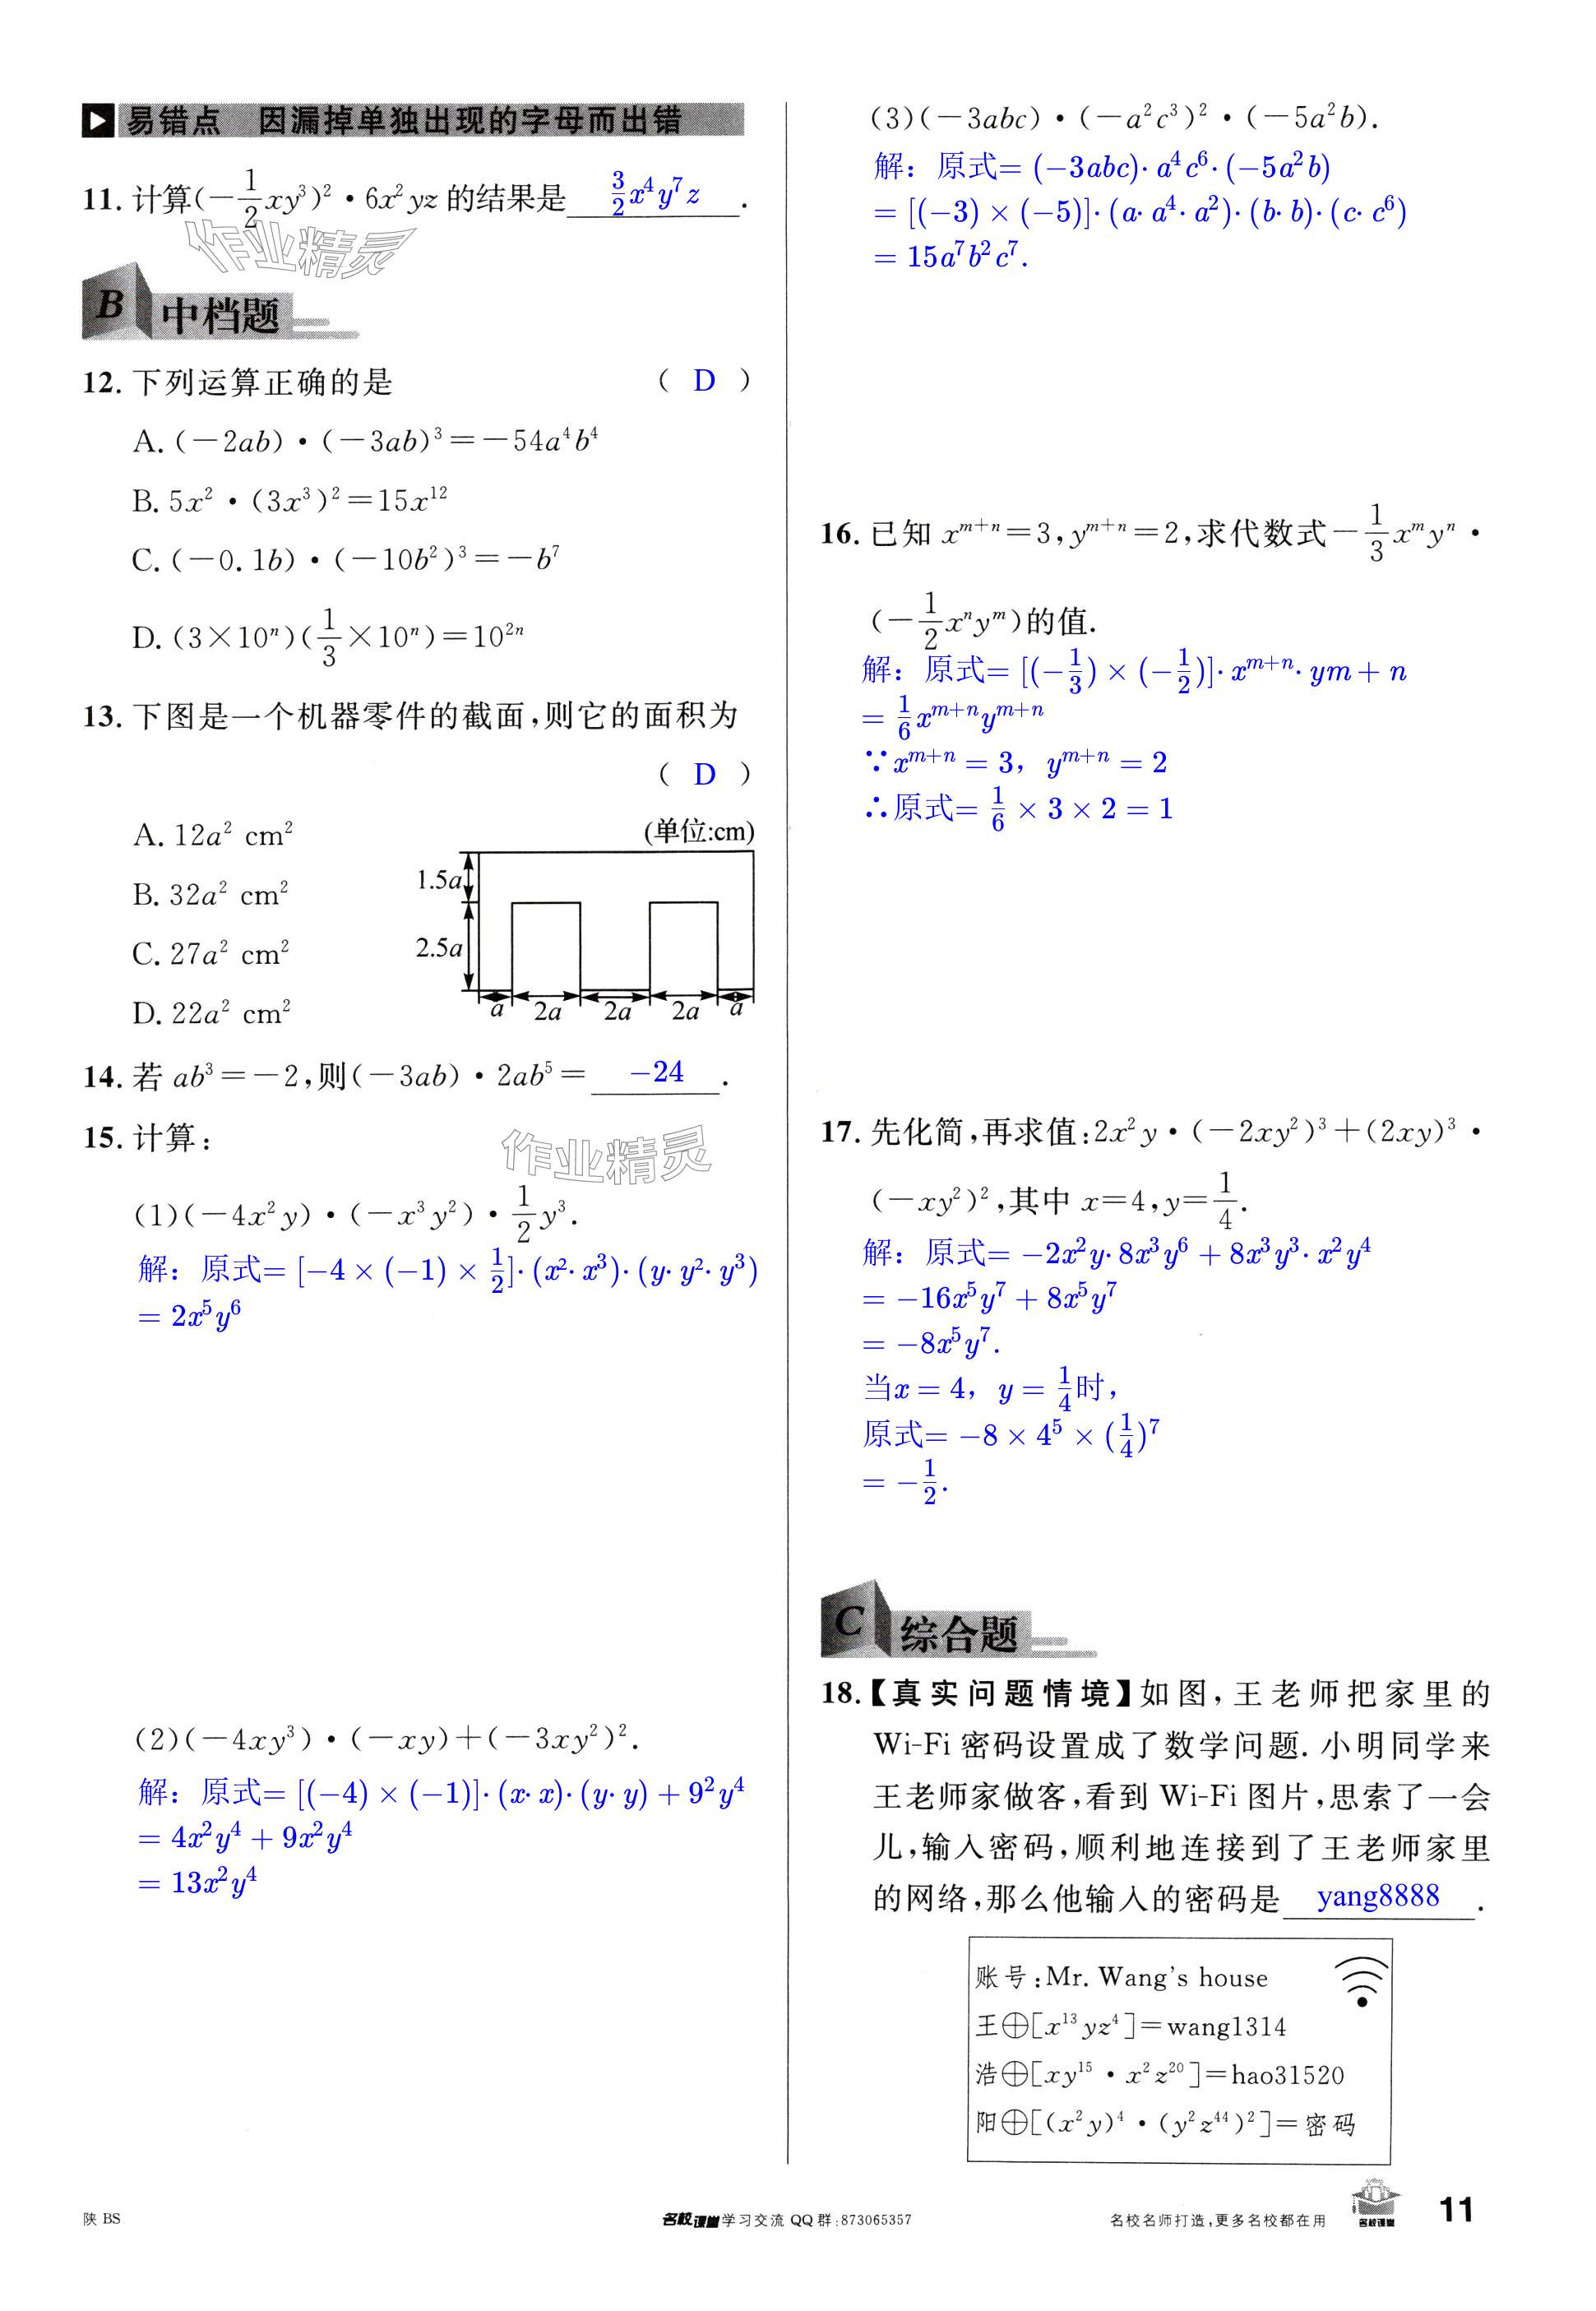 易错点 因漏掉单独出现的字母而出错
11. 计算(-1/2xy³)²·6x²yz的结果是 3/2x⁴y⁷z .
作业精灵
B 中档题
12. 下列运算正确的是 ( D )
A. (-2ab)·(-3ab)³=-54a⁴b⁴
B. 5x²·(3x³)²=15x¹²
C. (-0.1b)·(-10b²)³=-b⁷
D. (3×10ⁿ)(1/3×10ⁿ)=10²ⁿ
13. 下图是一个机器零件的截面,则它的面积为
( D )
A. 12a² cm²
B. 32a² cm²
C. 27a² cm²
D. 22a² cm²
(单位:cm)
1.5a
2.5a
a 2a 2a 2a a
14. 若ab³=-2,则(-3ab)·2ab⁵= -24 .
15. 计算:
作业精灵
(1)(-4x²y)·(-x³y²)·1/2y³.
解：原式=[-4×(-1)×1/2]·(x²·x³)·(y·y²·y³)
=2x⁵y⁶
(2)(-4xy³)·(-xy)+(-3xy²)².
解：原式=[(-4)×(-1)]·(x·x)·(y·y)+9²y⁴
=4x²y⁴+9x²y⁴
=13x²y⁴
(3)(-3abc)·(-a²c³)²·(-5a²b).
解：原式=(-3abc)·a⁴c⁶·(-5a²b)
=[(-3)×(-5)]·(a·a⁴·a²)·(b·b)·(c·c⁶)
=15a⁷b²c⁷.
16. 已知xᵐ⁺ⁿ=3,yᵐ⁺ⁿ=2,求代数式-1/3xᵐyⁿ·
(-1/2xⁿyᵐ)的值.
解：原式=[(-1/3)×(-1/2)]·xᵐ⁺ⁿ·ym+n
=1/6xᵐ⁺ⁿyᵐ⁺ⁿ
∵xᵐ⁺ⁿ=3，yᵐ⁺ⁿ=2
∴原式=1/6×3×2=1
17. 先化简,再求值:2x²y·(-2xy²)³+(2xy)³·
(-xy²)²,其中x=4,y=1/4.
解：原式=-2x²y·8x³y⁶+8x³y³·x²y⁴
=-16x⁵y⁷+8x⁵y⁷
=-8x⁵y⁷.
当x=4，y=1/4时，
原式=-8×4⁵×(1/4)⁷
=-1/2.
C 综合题
18.【真实问题情境】如图,王老师把家里的
Wi-Fi密码设置成了数学问题.小明同学来
王老师家做客,看到Wi-Fi图片,思索了一会
儿,输入密码,顺利地连接到了王老师家里
的网络,那么他输入的密码是 yang8888 .
账号:Mr. Wang's house
王⊕[x¹³yz⁴]=wang1314
浩⊕[xy¹⁵·x²z²⁰]=hao31520
阳⊕[(x²y)⁴·(y²z⁴⁴)²]=密码
陕 BS
名校课堂学习交流QQ群:873065357
名校名师打造,更多名校都在用
名校课堂
11